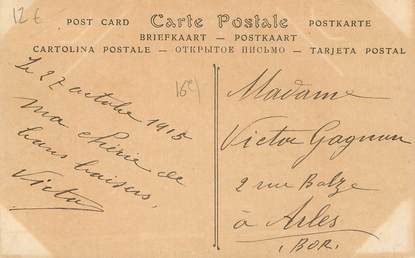 12 €
POST CARD Carte Postale POSTKARTE
BRIEFKAART — POSTKAART
CARTOLINA POSTALE — ОТКРЫТОЕ ПИСЬМО — TARJETA POSTAL
Le 27 octobre 1915
Ma chérie de
bons baisers,
Victor
Madame
Victor Gagnon
2 rue Balze
à Arles
(BDR)